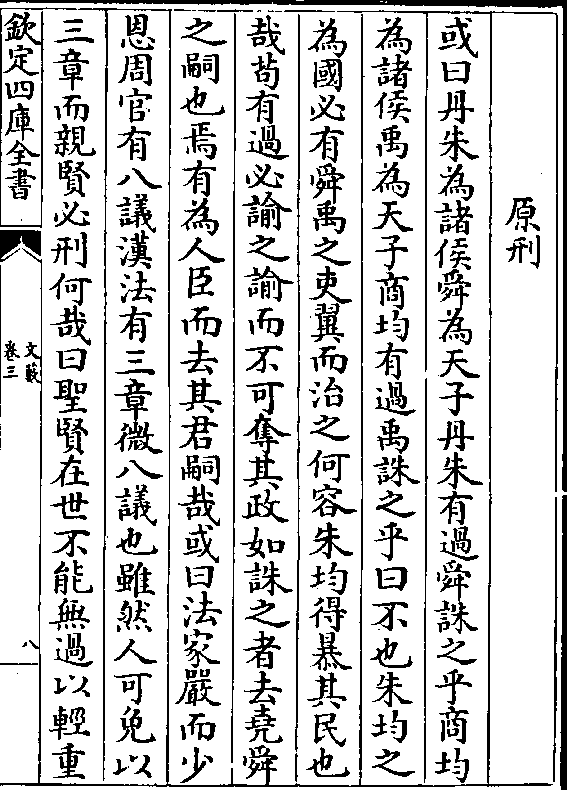 原刑
或曰丹朱為諸侯舜為天子丹朱有過舜誅之乎商均
為諸侯禹為天子商均有過禹誅之乎曰不也朱均之
為國必有舜禹之吏翼而治之何容朱均得暴其民也
哉苟有過必諭之諭而不可奪其政如誅之者去堯舜
之嗣也焉有為人臣而去其君嗣哉或曰法家嚴而少
恩周官有八議漢法有三章微八議也雖然人可免以
三章而親賢必刑何哉曰聖賢在世不能無過以輕重
欽定四庫全書
文藪
卷三
八